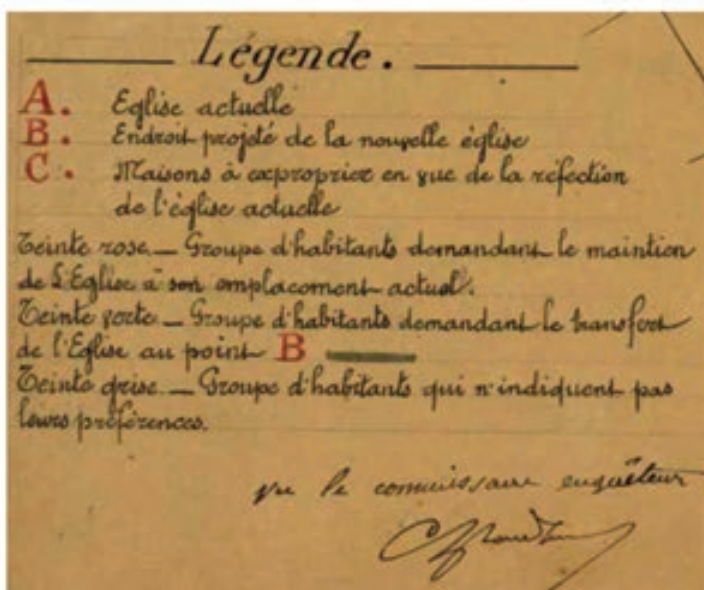 Légende.
A. Eglise actuelle
B. Endroit projeté de la nouvelle église
C. Maisons à exproprier en vue de la réfection
de l'église actuelle
Teinte rose._ Groupe d'habitants demandant le maintien
de L'Eglise à son emplacement actuel.
Teinte verte._ Groupe d'habitants demandant le transfert
de l'Eglise au point B
Teinte grise._ Groupe d'habitants qui n'indiquent pas
leurs préférences.
le commissaire enquêteur